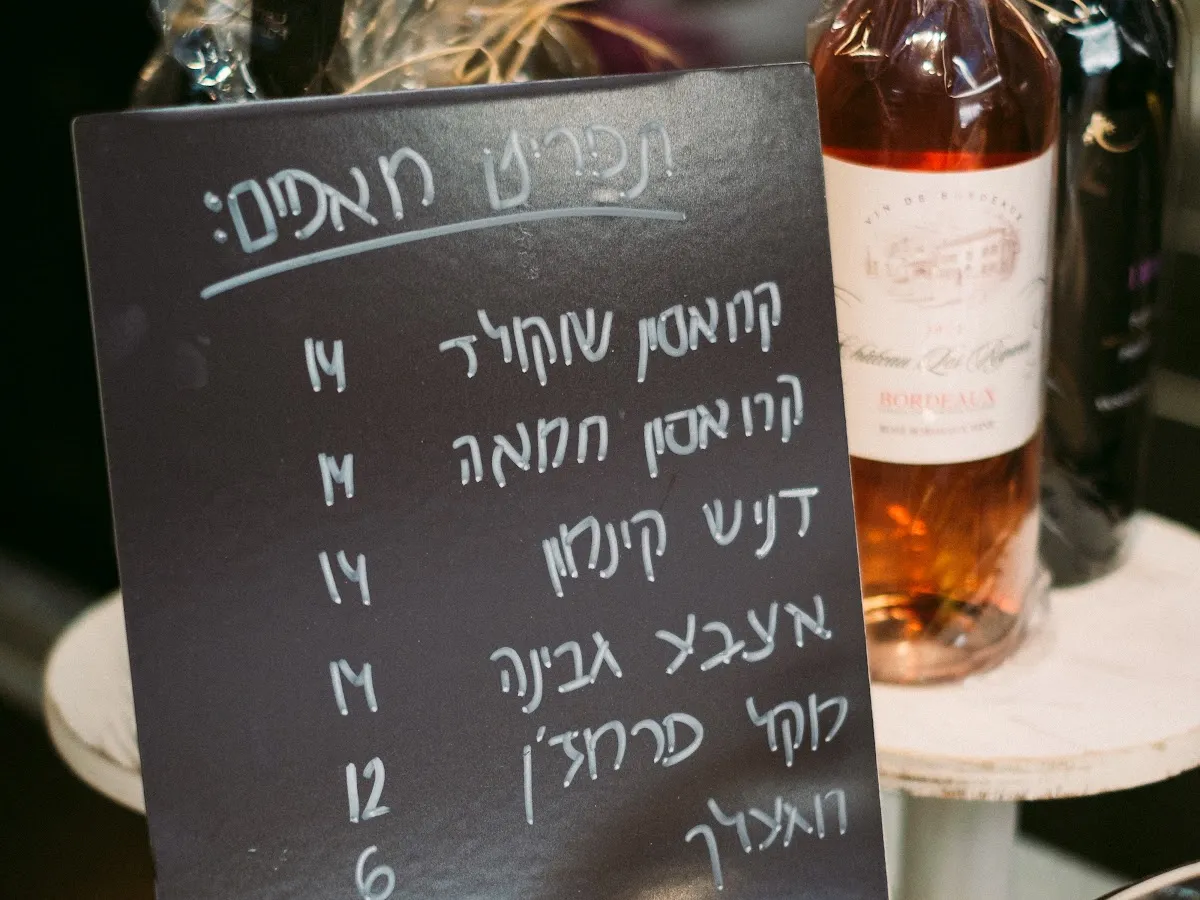 תפריט מאפים:
קרואסון שוקולד 14
קרואסון חמאה 14
דניש קינמון 14
אצבע גבינה 14
מקל פרמז'ן 12
רוגעלך 6
VIN DE BORDEAUX
Château Les
BORDEAUX